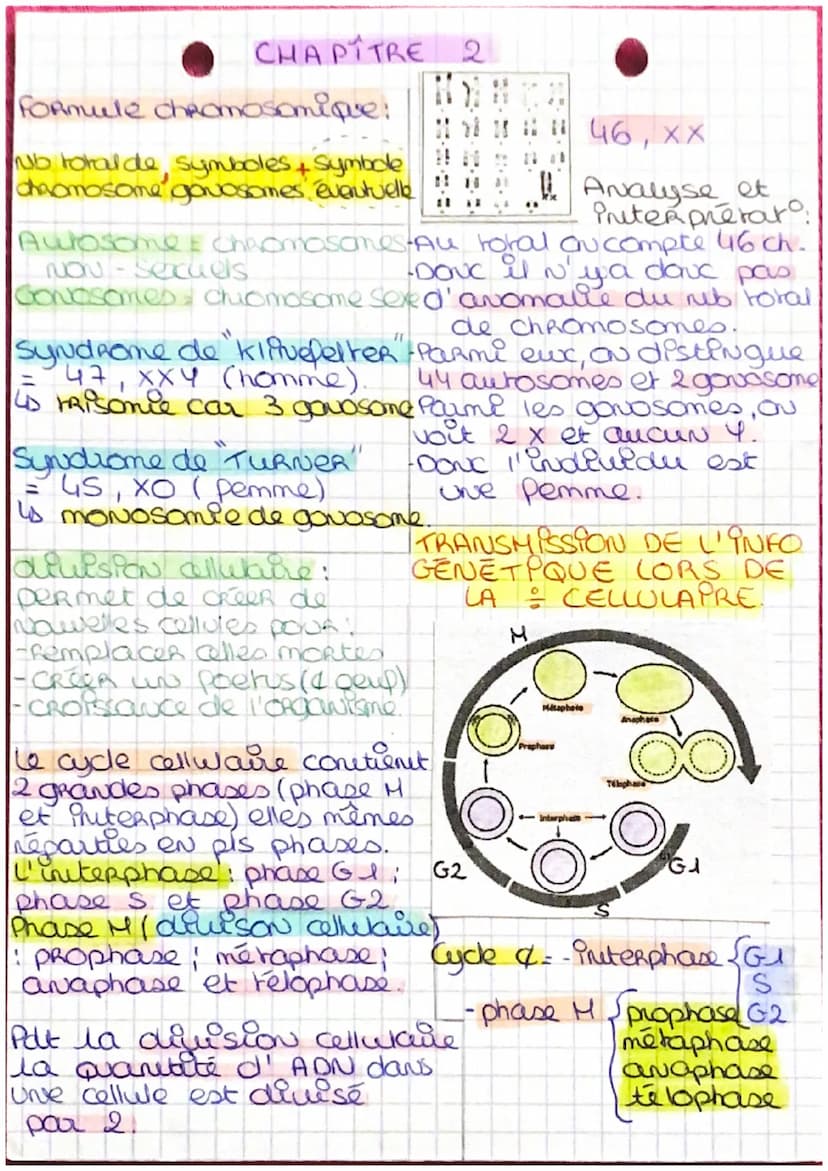 CHAPÎTRE 2
Formule chromosomique:
Nb total de, symboles + symbole
chromosome, gonosomes, éventuelle
Autosome = chromosomes
non-sexuels
Gonosomes = chromosome sexe
Syndrome de "Klinefelter"
= 47, XXY (homme).
↳ trisomie car 3 gonosome
Syndrome de "TURNER"
= 45, XO (femme)
↳ monosomie de gonosome.
division cellulaire:
permet de créer de
nouvelles cellules pour:
-remplacer celles mortes
-créer un foetus (¢ oeuf)
-croissance de l'organisme.
Le cycle cellulaire contient
2 grandes phases (phase M
et interphase) elles mêmes
réparties en pls phases.
L'interphase: phase G1;
phase S et phase G2
Phase M (division cellulaire)
: prophase; métaphase;
anaphase et télophase.
Pdt la division cellulaire
la quantité d'ADN dans
une cellule est divisé
par 2.
46, XX
Analyse et
interprétat°:
-Au total on compte 46 ch.
-Donc il n'y a donc pas
d'anomalie du nb total
de chromosomes.
-Parmi eux, on distingue
44 autosomes et 2 gonosome
Parmi les gonosomes, on
voit 2 X et aucun Y.
-Donc l'individu est
une femme.
TRANSMISSION DE L'INFO
GÉNÉTIQUE LORS DE
LA ÷ CELLULAIRE.
M
Métaphase
Anaphase
Prophase
Télophase
Interphase
G2
G1
S
Cycle ¢ = -interphase { G1
S
G2
-phase M { prophase
métaphase
anaphase
télophase